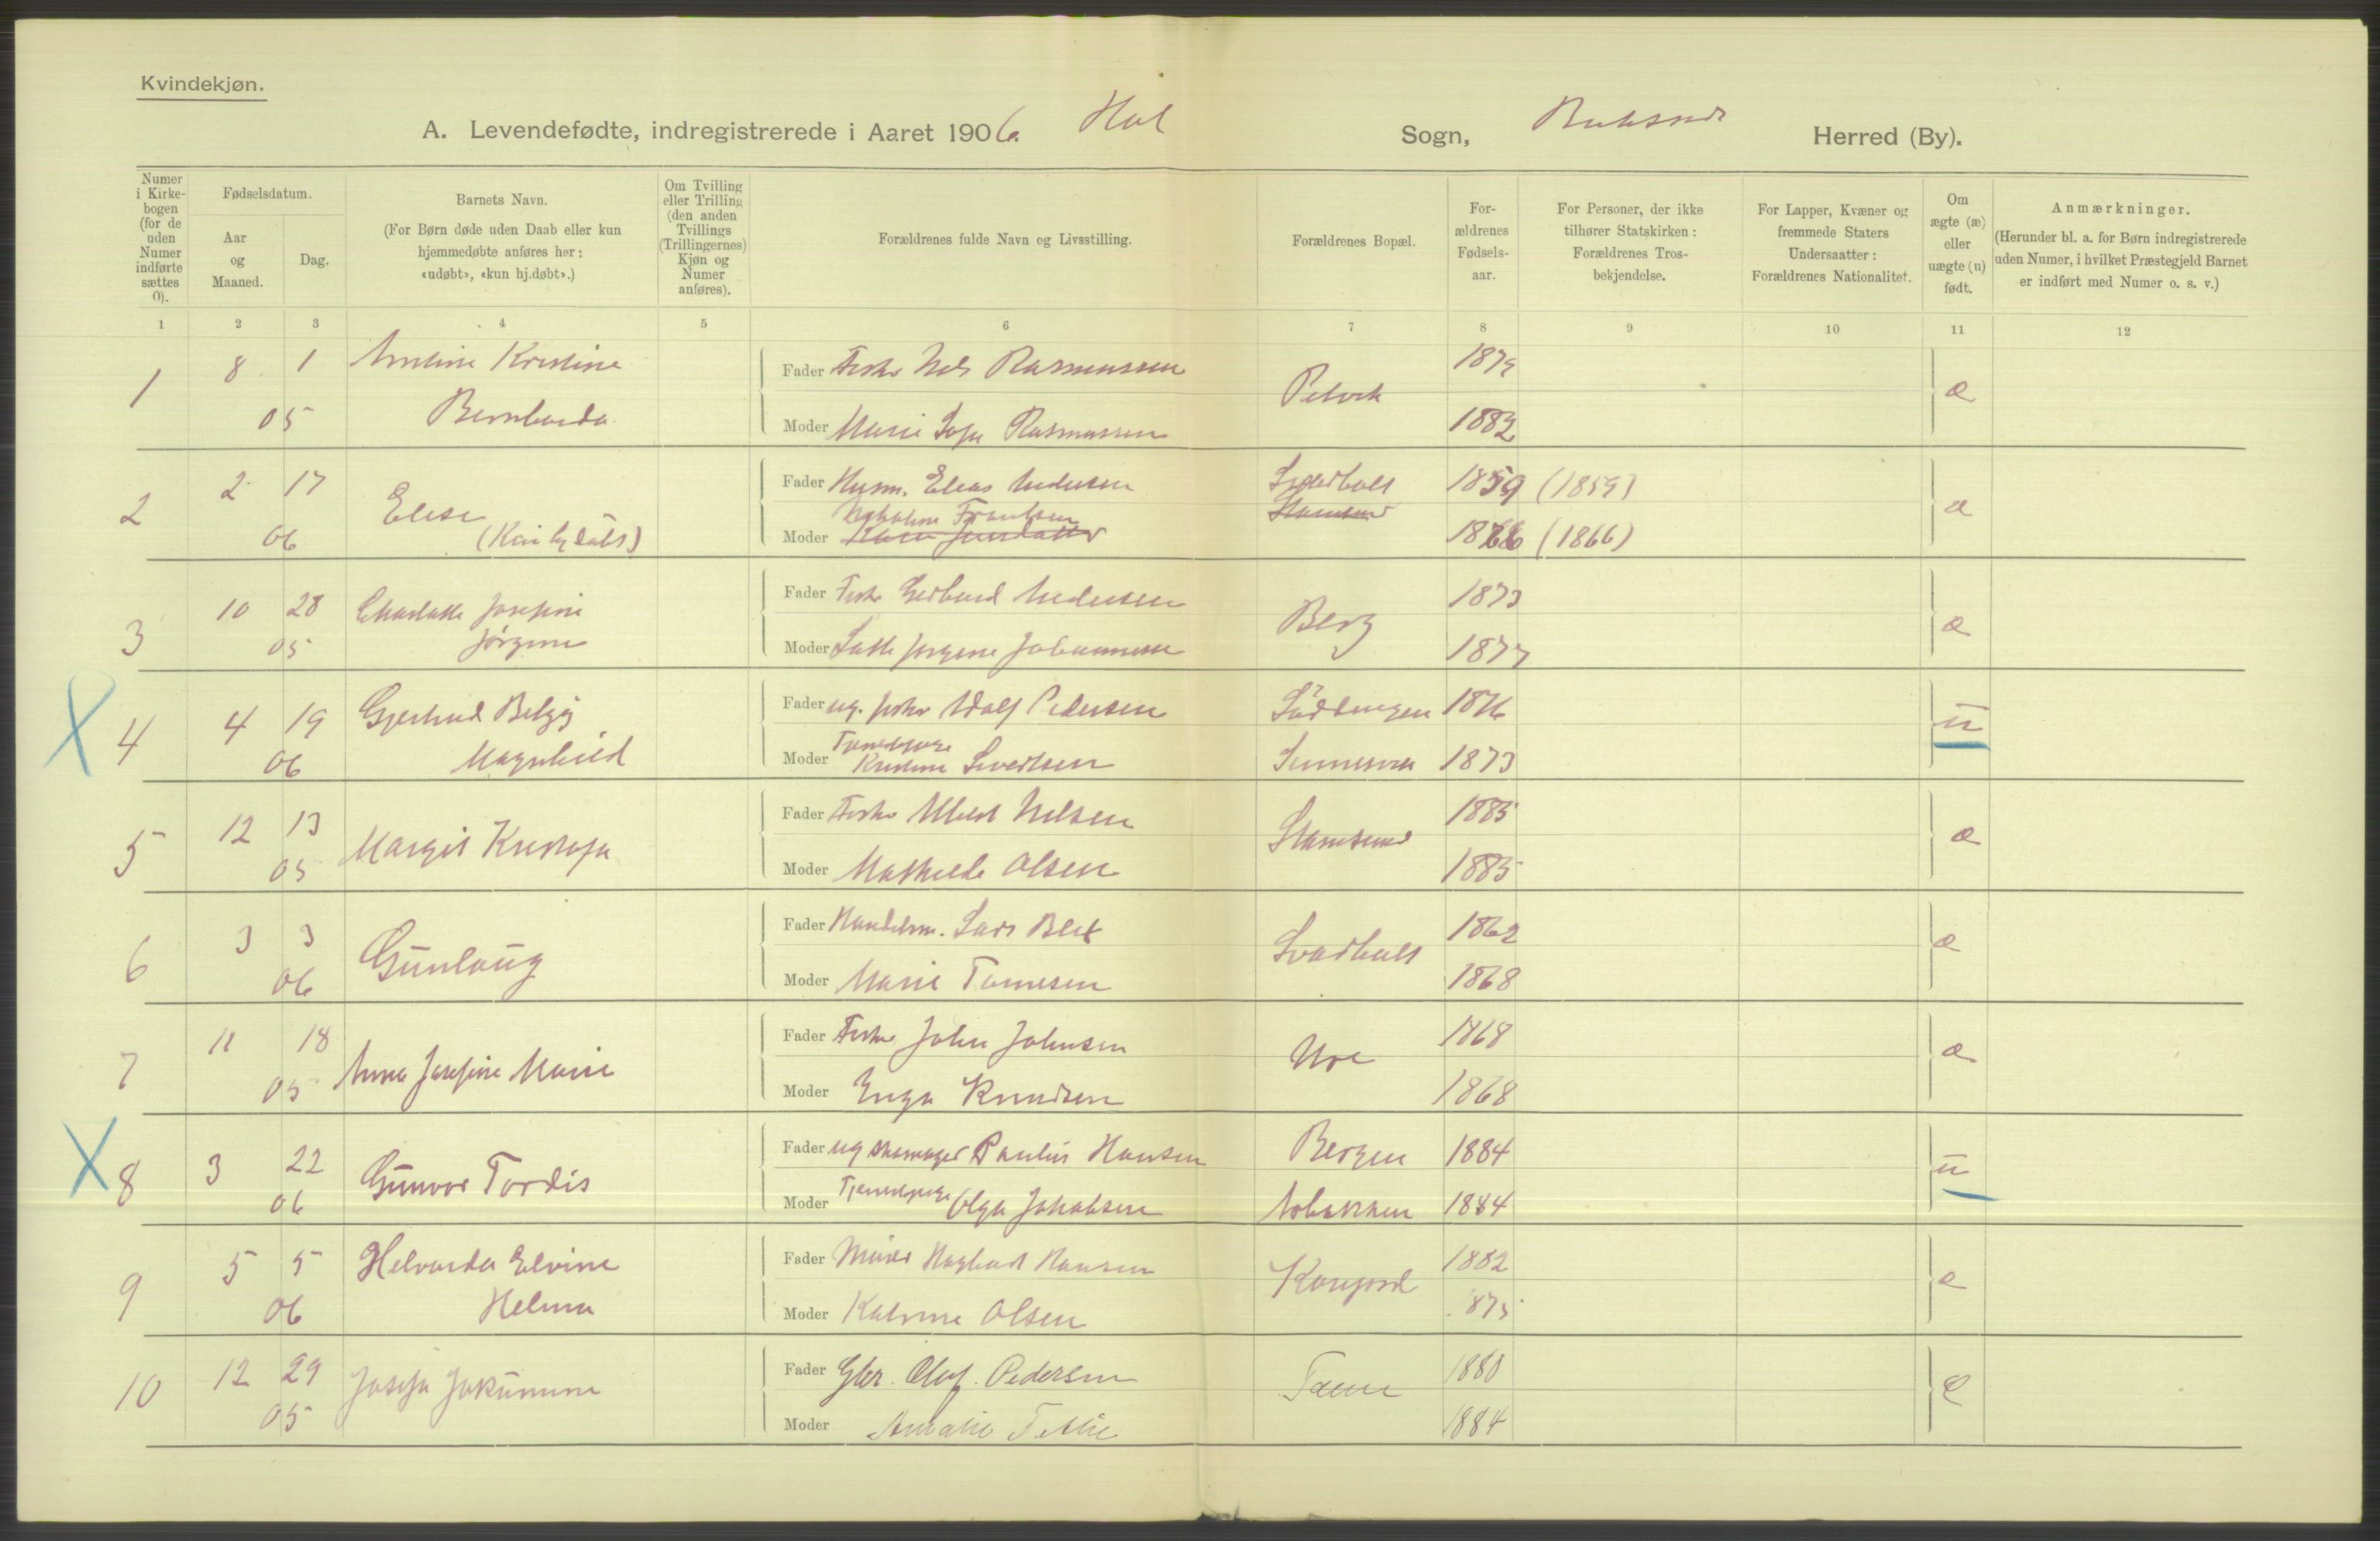 Kvindekjøn.
A. Levendefødte, indregistrerede i Aaret 1906. Hol Sogn, Buksnes Herred (By).
Numer i Kirkebogen (for de uden Numer indførte sættes 0).
Fødselsdatum.
Aar og Maaned.
Dag.
Barnets Navn.
(For Børn døde uden Daab eller kun hjemmedøbte anføres her: «udøbt», «kun hj.døbt».)
Om Tvilling eller Trilling (den anden Tvillings (Trillingernes) Kjøn og Numer anføres).
Forældrenes fulde Navn og Livsstilling.
Forældrenes Bopæl.
Forældrenes Fødselsaar.
For Personer, der ikke tilhører Statskirken: Forældrenes Trosbekjendelse.
For Lapper, Kvæner og fremmede Staters Undersaatter: Forældrenes Nationalitet.
Om ægte (æ) eller uægte (u) født.
Anmærkninger.
(Herunder bl. a. for Børn indregistrerede uden Numer, i hvilket Præstegjeld Barnet er indført med Numer o. s. v.)
1 2 3 4 5 6 7 8 9 10 11 12
1 8 1 Kristine Fader Fisker Nels Rasmussen 1879 æ
05 Bernharda Moder Marie Rasmussen 1882
2 2 17 Elise Fader Husm. Elias Andersen Svarholt 1859 (1859) æ
06 Moder Frantsen Stamsund 1866 (1866)
3 10 28 Charlotte Josefine Fader Fisker Gerhard Andersen Berg 1873 æ
05 Jørgine Moder Jørgine Johannesen 1877
4 4 19 Gjertrud Fader ug. fisker Adolf Pedersen 1876 u
06 Magnhild Moder Tjenestpige Kristine Sivertsen 1873
5 12 13 Margit Kristofa Fader Fisker Albert Nelsen Stamsund 1885 æ
05 Moder Mathilde Olsen 1885
6 3 3 Gunlaug Fader Handelsm. Lars Blix Svarholt 1862 æ
06 Moder Marie Tønnesen 1868
7 11 18 Anna Josefine Marie Fader Fisker John Johnsen Ure 1868 æ
05 Moder Inga Knudsen 1868
8 3 22 Gunvor Tordis Fader ug Skomager Paulus Hansen Bergen 1884 u
06 Moder Tjenestpige Olga Jakobsen 1884
9 5 5 Helvarda Elvine Fader Murer Hagbart Hansen 1882 æ
06 Helma Moder Katrine Olsen 1875
10 12 29 Josefa Jakumine Fader Gbr. Oluf Pedersen 1880 æ
05 Moder Amalie 1884